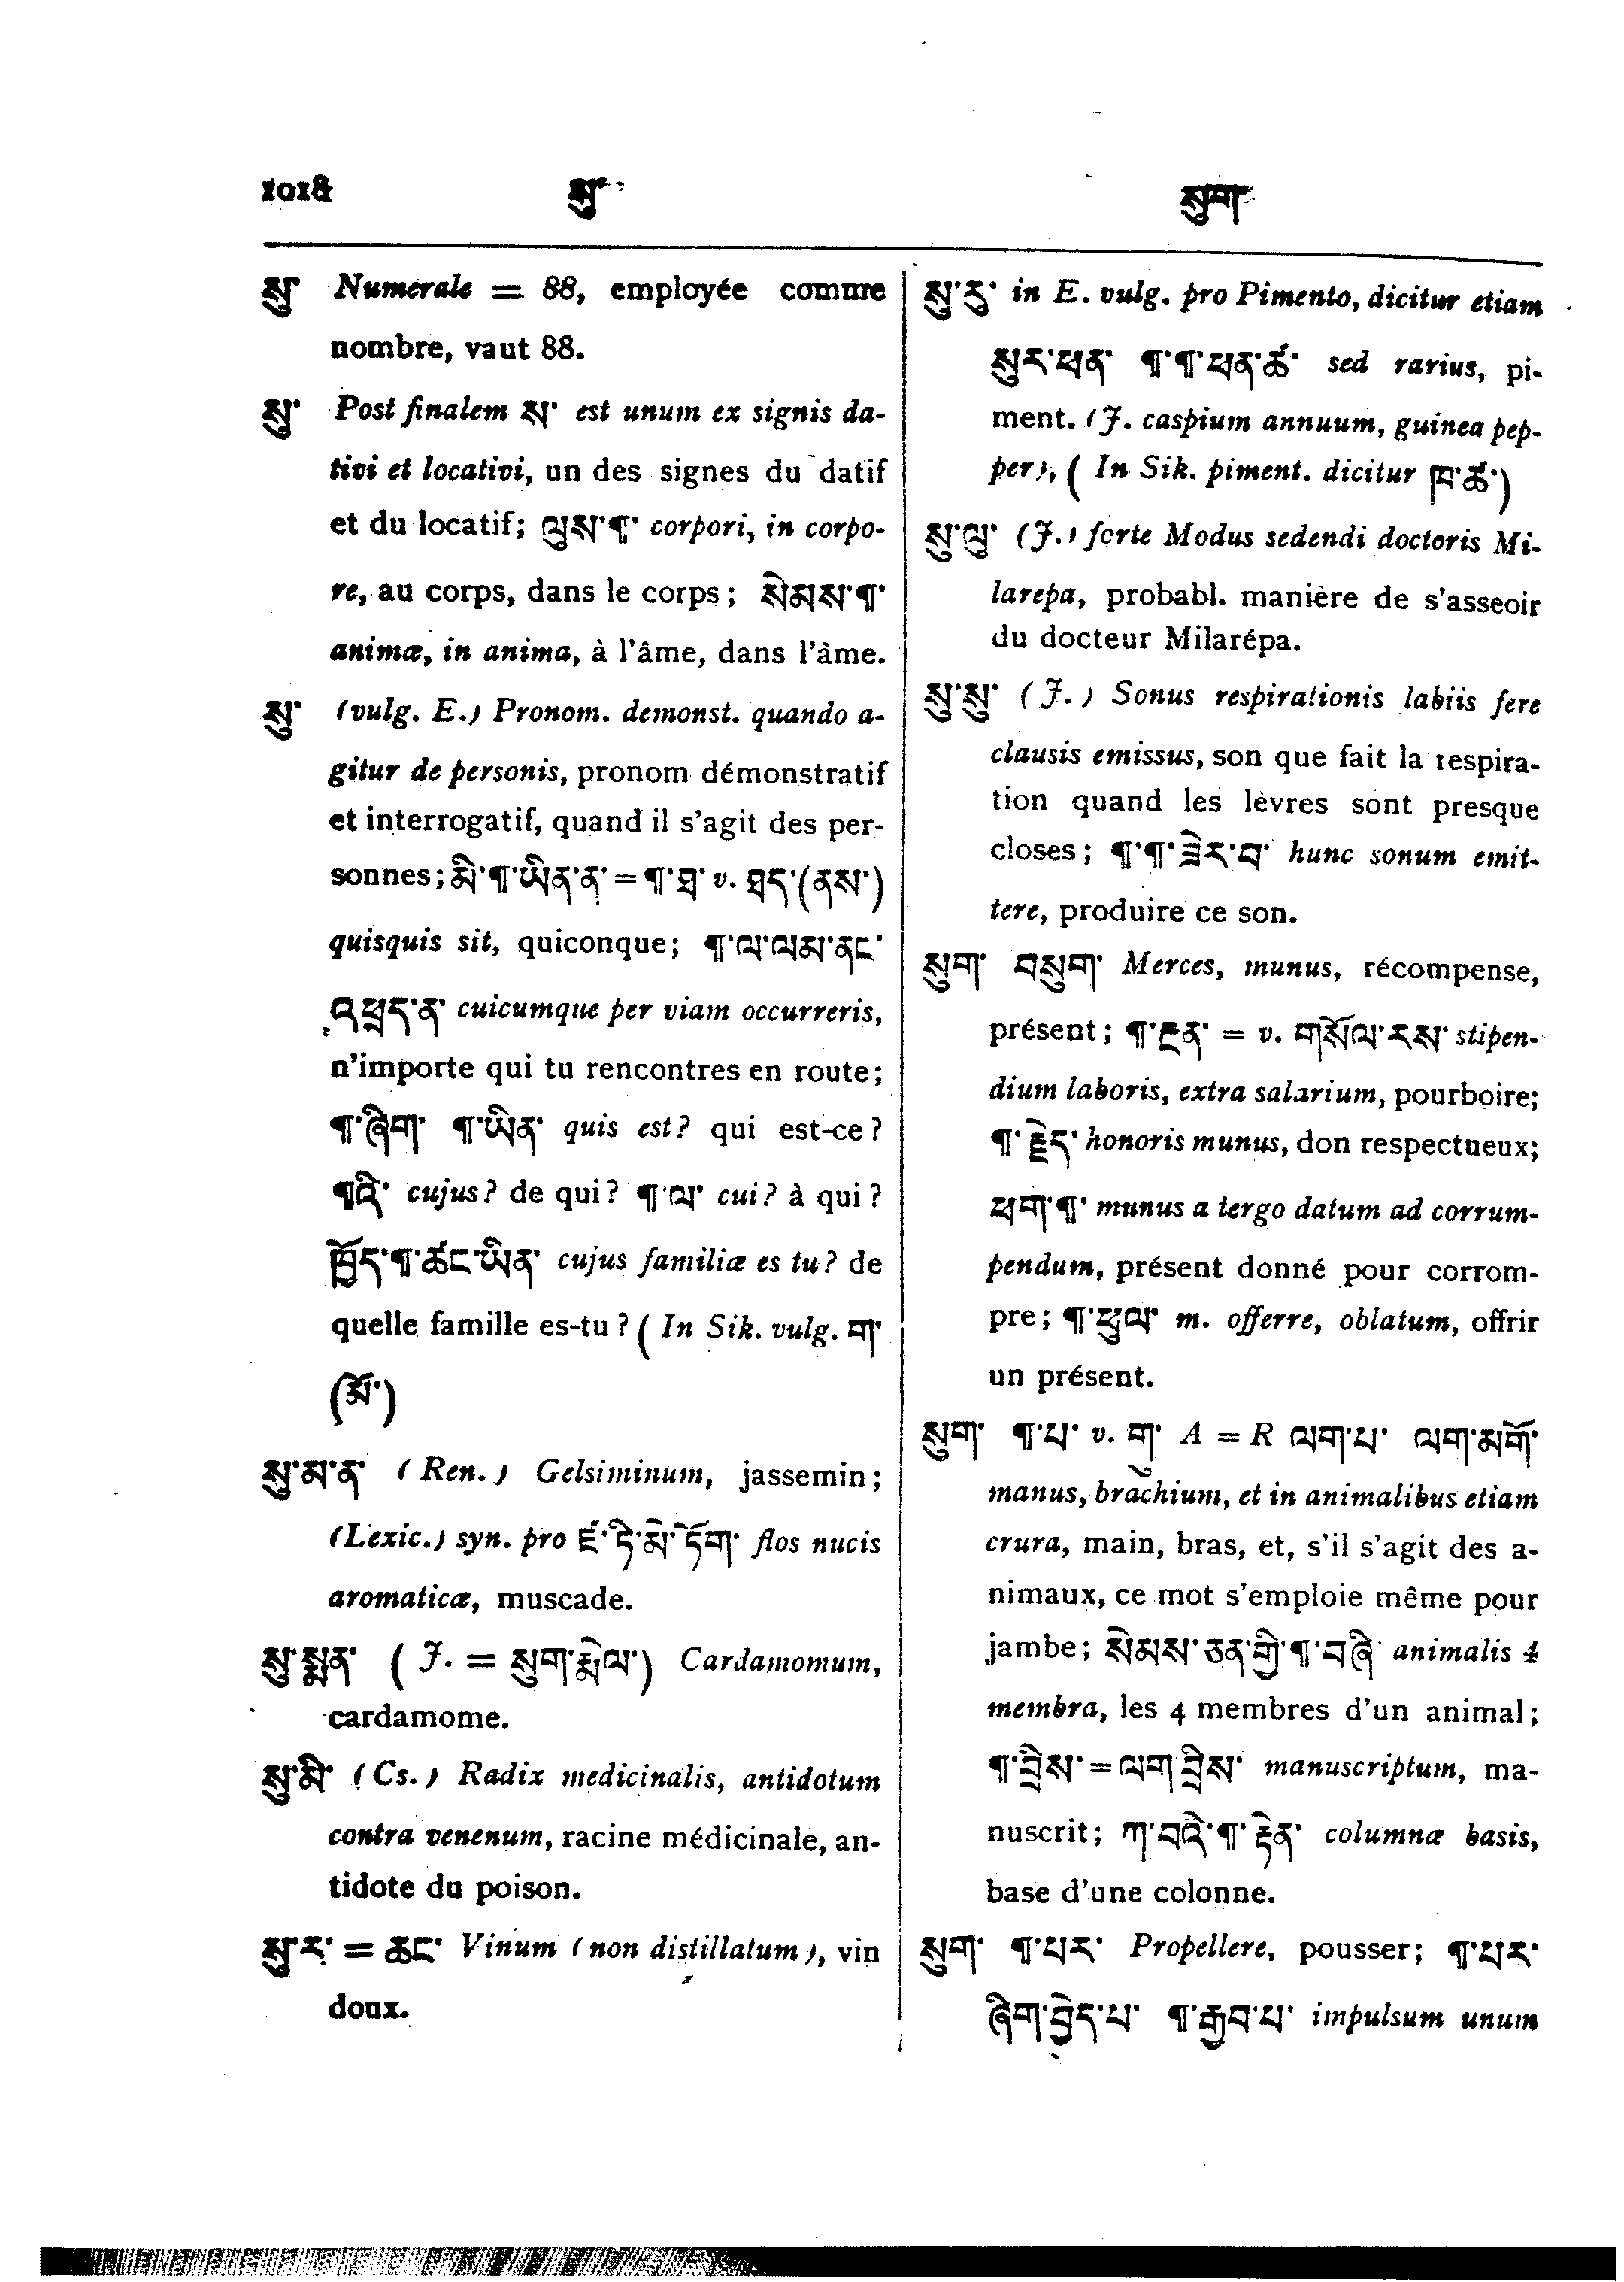 1018 སུ་ སུག་
སུ་ Numerale = 88, employée comme
nombre, vaut 88.
སུ་ Post finalem ས་ est unum ex signis da-
tivi et locativi, un des signes du datif
et du locatif; ལུས་¶་ corpori, in corpo-
re, au corps, dans le corps; སེམས་¶་
animæ, in anima, à l'âme, dans l'âme.
སུ་ (vulg. E.) Pronom. demonst. quando a-
gitur de personis, pronom démonstratif
et interrogatif, quand il s'agit des per-
sonnes; མི་¶་ཡིན་ན་ = ¶་ཐ་ v. ཐད་(ནས་)
quisquis sit, quiconque; ¶་ལ་ལམ་ནང་
འཕྲད་ན་ cuicumque per viam occurreris,
n'importe qui tu rencontres en route;
¶་ཞིག་ ¶་ཡིན་ quis est? qui est-ce?
¶འི་ cujus? de qui? ¶་ལ་ cui? à qui?
ཁྱོད་¶་ཚང་ཡིན་ cujus familiæ es tu? de
quelle famille es-tu? ( In Sik. vulg. ག་
(མོ་)
སུ་མ་ན་ (Ren.) Gelsiminum, jassemin;
(Lexic.) syn. pro ཛ་ཏི་མེ་ཏོག་ flos nucis
aromaticæ, muscade.
སུ་སྨན་ ( J. = སུག་སྨེལ་) Cardamomum,
cardamome.
སུ་མི་ (Cs.) Radix medicinalis, antidotum
contra venenum, racine médicinale, an-
tidote du poison.
སུ་ར་ = ཆང་ Vinum (non distillatum), vin
doux.
སུ་རུ་ in E. vulg. pro Pimento, dicitur etiam
སུར་ཕན་ ¶་¶་ཕན་ཚ་ sed rarius, pi-
ment. (J. caspium annuum, guinea pep-
per), ( In Sik. piment. dicitur ཁ་ཚ་)
སུ་ལུ་ (J.) forte Modus sedendi doctoris Mi-
larepa, probabl. manière de s'asseoir
du docteur Milarépa.
སུ་སུ་ (J.) Sonus respirationis labiis fere
clausis emissus, son que fait la respira-
tion quand les lèvres sont presque
closes; ¶་¶་ཟེར་བ་ hunc sonum emit-
tere, produire ce son.
སུག་ བསུག་ Merces, munus, récompense,
présent; ¶་རྔན་ = v. གསོལ་རས་ stipen-
dium laboris, extra salarium, pourboire;
¶་རྗེད་ honoris munus, don respectueux;
ཕག་¶་ munus a tergo datum ad corrum-
pendum, présent donné pour corrom-
pre; ¶་ཕུལ་ m. offerre, oblatum, offrir
un présent.
སུག་ ¶་པ་ v. གུ་ A = R ལག་པ་ ལག་མགོ་
manus, brachium, et in animalibus etiam
crura, main, bras, et, s'il s'agit des a-
nimaux, ce mot s'emploie même pour
jambe; སེམས་ཅན་གྱི་¶་བཞི་ animalis 4
membra, les 4 membres d'un animal;
¶་བྲིས་ = ལག་བྲིས་ manuscriptum, ma-
nuscrit; ཀ་བའི་¶་རྟེན་ columnæ basis,
base d'une colonne.
སུག་ ¶་པར་ Propellere, pousser; ¶་པར་
ཞིག་བྱེད་པ་ ¶་རྒྱབ་པ་ impulsum unum